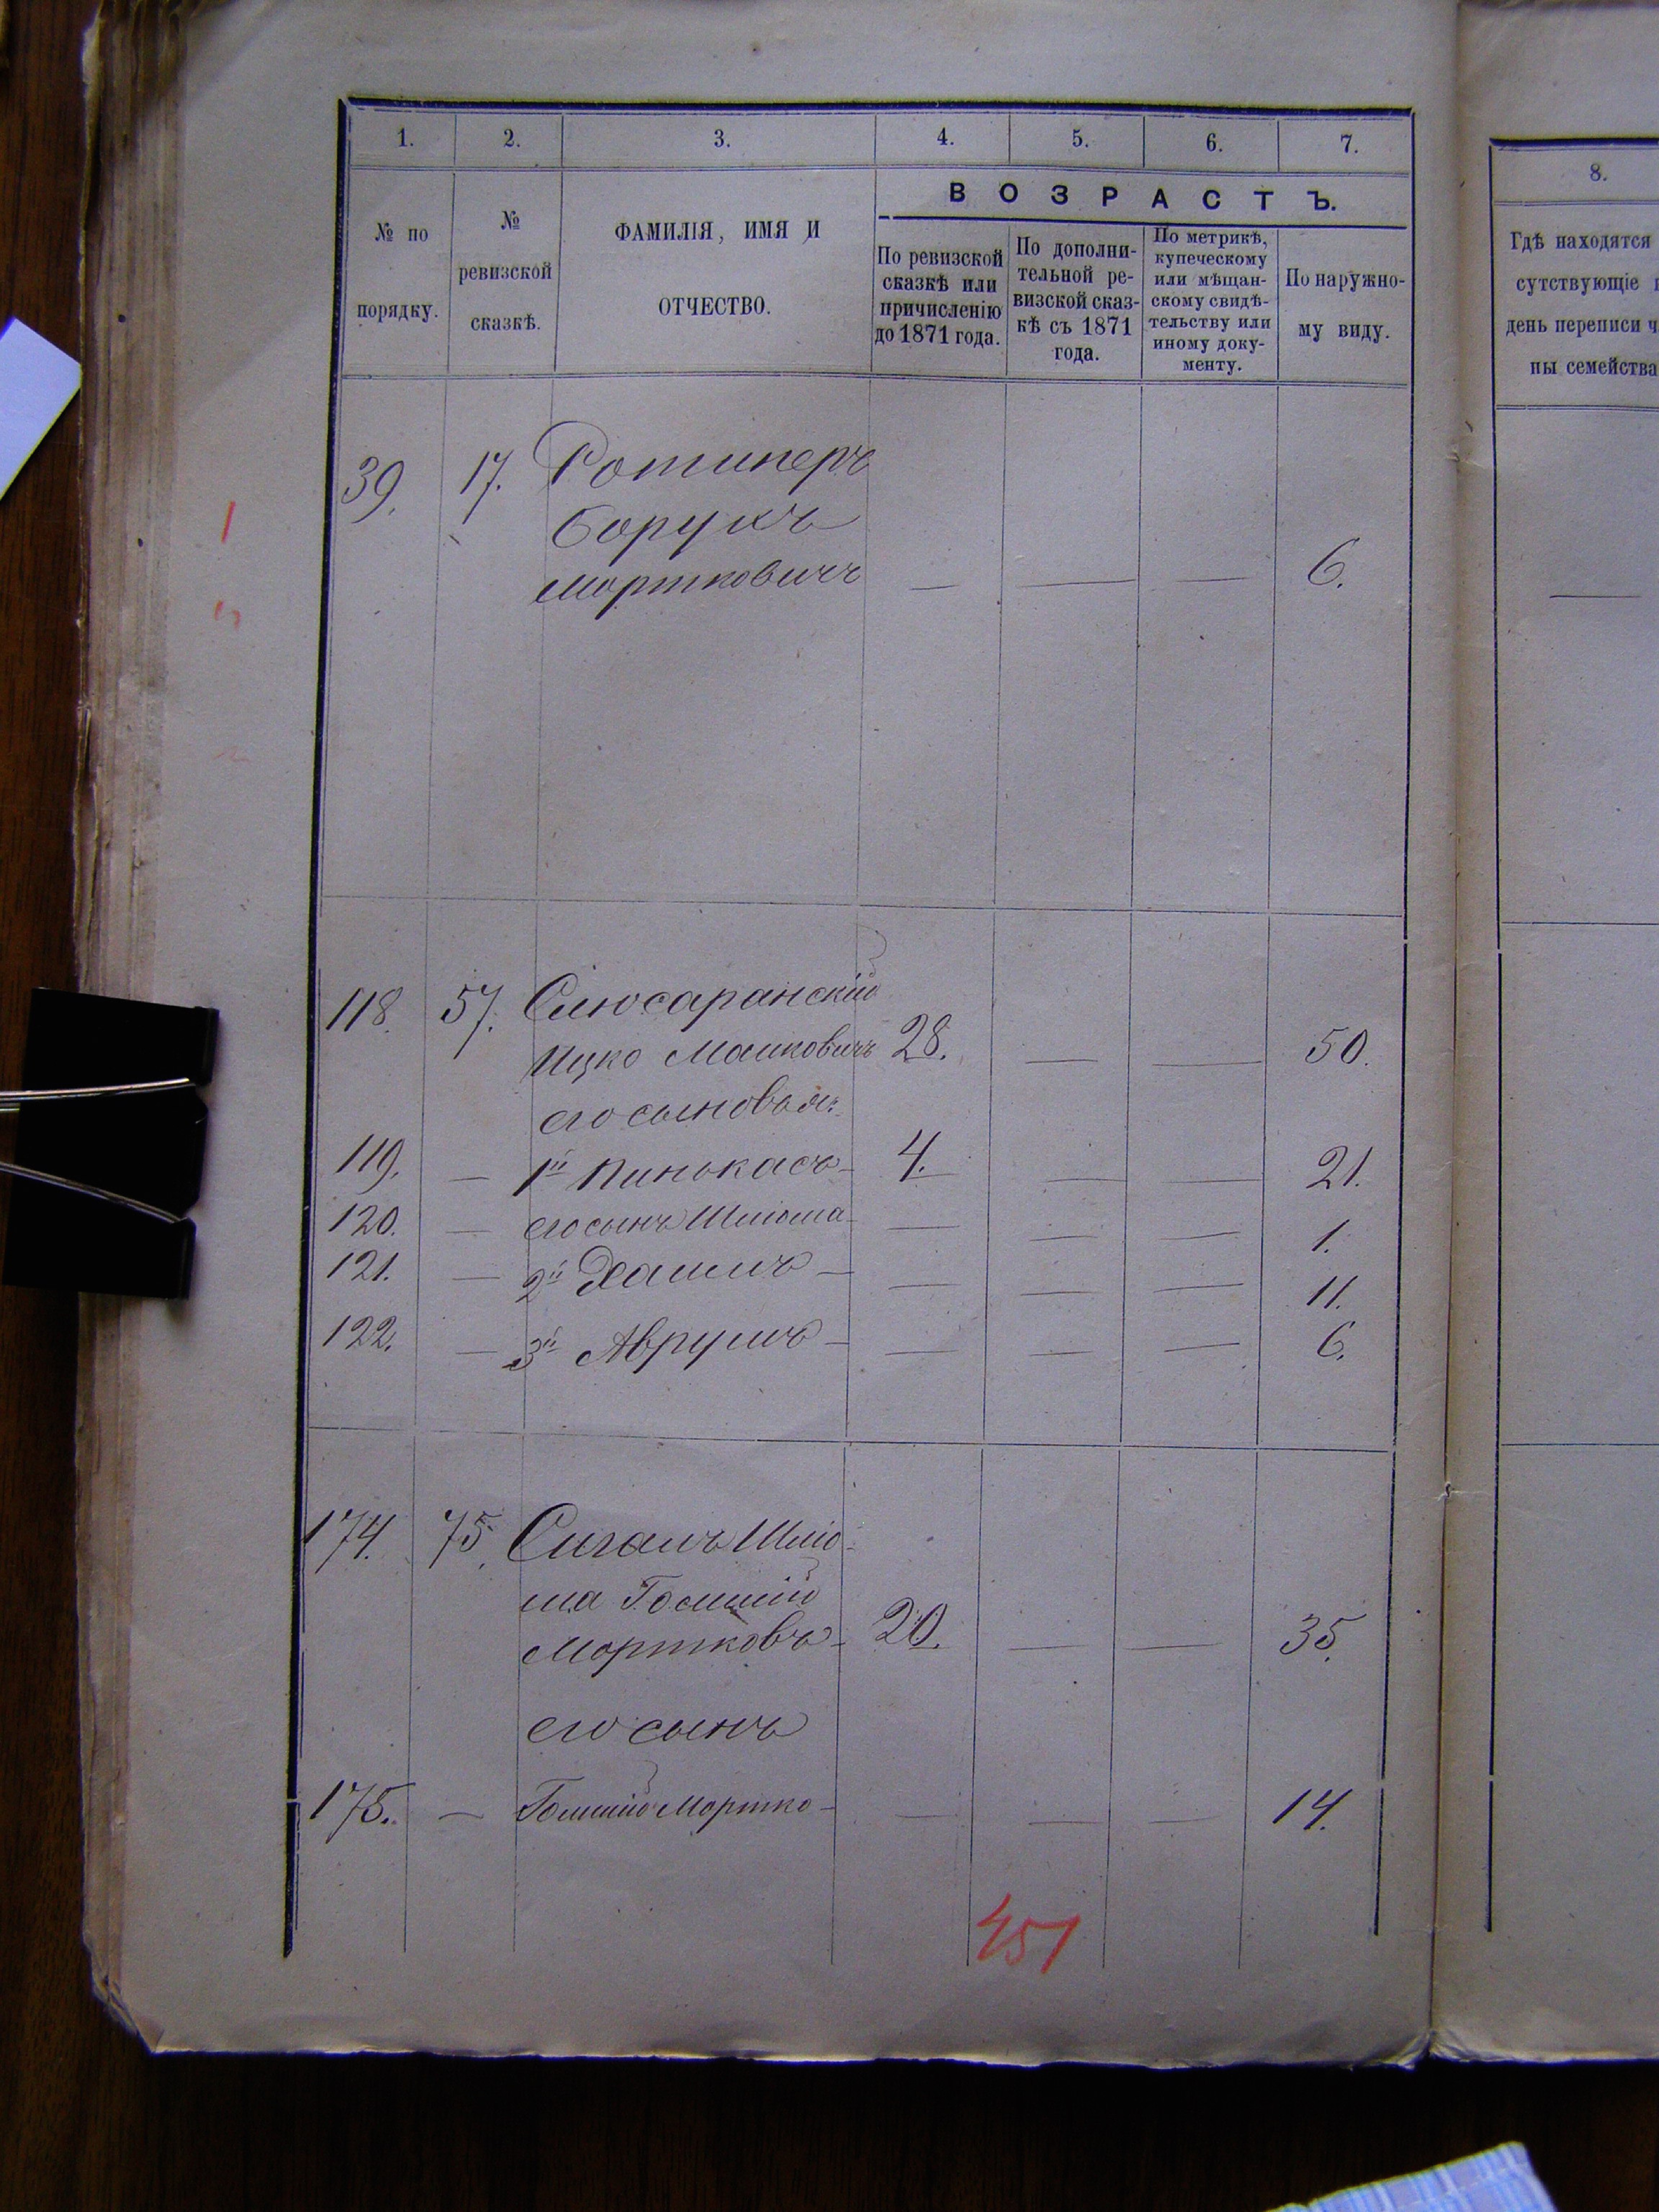 1. 2. 3. 4. 5. 6. 7.
№ по порядку.
№ ревизской сказкѣ.
ФАМИЛІЯ, ИМЯ И ОТЧЕСТВО.
ВОЗРАСТЪ.
По ревизской сказкѣ или причисленію до 1871 года.
По дополнительной ревизской сказкѣ съ 1871 года.
По метрикѣ, купеческому или мѣщанскому свидѣтельству или иному документу.
По наружному виду.
8.
Гдѣ находятся
сутствующіе
день переписи ч
ны семейства
39. 17. Ротинеръ
Борухъ
Мортковичъ — — — 6. —
118. 57. Слюсаранскій
Ицко Машковичъ 28. — — 50.
его сыновья:
119. — 1й Пинькасъ 4. — — 21.
120. — его сынъ Шліома — — — 1.
121. — 2й Хаимъ — — — 11.
122. — 3й Аврумъ — — — 6.
174. 75. Сигалъ Шлio-
ма
Мортковъ 20. — — 35.
его сынъ
175. — Мортко — — — 14.
451